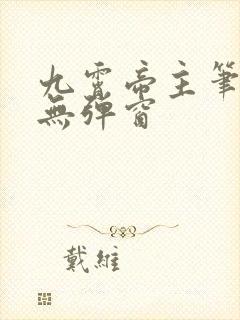 九霄帝主筆
無彈窗
戴維